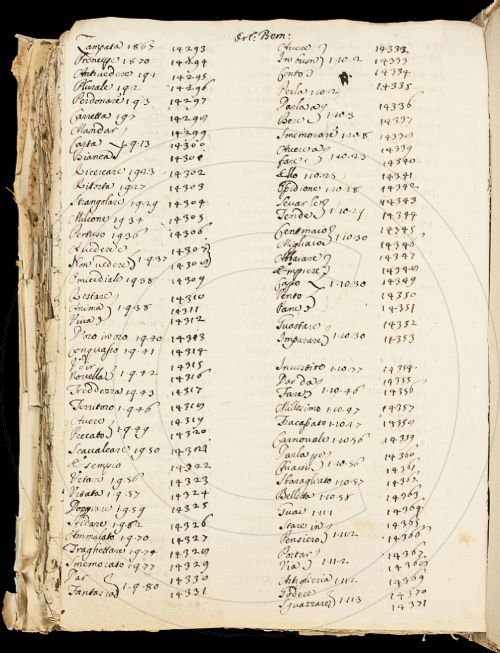 Orl: Bern:
Zampata 1·8·67 14293
Prencipe 1·8·70 14294
Antivedere 1·9·1 14295
Plurale 1·9·2 14296
Perdonare 1·9·3 14297
Carretta 1·9·7 14298
Mandar 14299
Carta 1·9·13 14300
Bianca 14301
Ricercare 1·9·23 14302
Ritorta 1·9·27 14303
Strangolare 1·9·29 14304
Milione 1·9·34 14305
Pertuso 1·9·36 14306
Avedere 14307
Non vedere 1·9·37 14308
Omicidiale 1·9·38 14309
Restare 14310
Anima 1·9·38 14311
Viva 14312
D'oro in oro 1·9·40 14313
Conquasso 1·9·41 14314
14315
Novella 1·9·42 14316
Freddezza 1·9·43 14317
Territoro 1·9·46 14318
Avere 14319
Peccato 1·9·49 14320
Scavalcare 1·9·50 14321
Esempio 14322
Vetare 1·9·56 14323
Vietata 1·9·57 14324
Poggiare 1·9·59 14325
Sfidare 1·9·62 14326
Ammalato 1·9·70 14327
Traghettare 1·9·74 14328
Smemorato 1·9·77 14329
Par 14330
Fantasia 1·9·80 14331
Avere 14332
In buon 1·10·2 14333
Conto 14334
Perla 1·10·2 14335
Parlare 14336
Bere 1·10·3 14337
Smemorare 1·10·8 14338
Avere a 14339
fare 1·10·23 14340
Ello 1·10·25 14341
Spidione 1·10·28 14342
Levar le 14343
Tende 1·10·29 14344
Centinaio 14345
Migliaio 1·10·30 14346
Abbaiare 14347
Empiere 14348
Capo 1·10·30 14349
Vento 14350
Pane 14351
Guastare 14352
Imparare 1·10·30 14353
Investito 1·10·37 14354
Par da 14355
Fare 1·10·46 14356
Millesimo 1·10·47 14357
Fracassato 1·10·47 14358
Carnovale 1·10·56 14359
Parlar per 14360
1·10·56 14361
Sbaragliato 1·10·57 14362
Belletta 1·10·58 14363
Guai 1·11·1 14364
Stare in 14365
Pensiero 1·11·2 14366
Portar 14367
Via 1·11·2 14368
Artiglieria 1·11·2 14369
Fodere 14370
Squarrare 1·11·3 14371